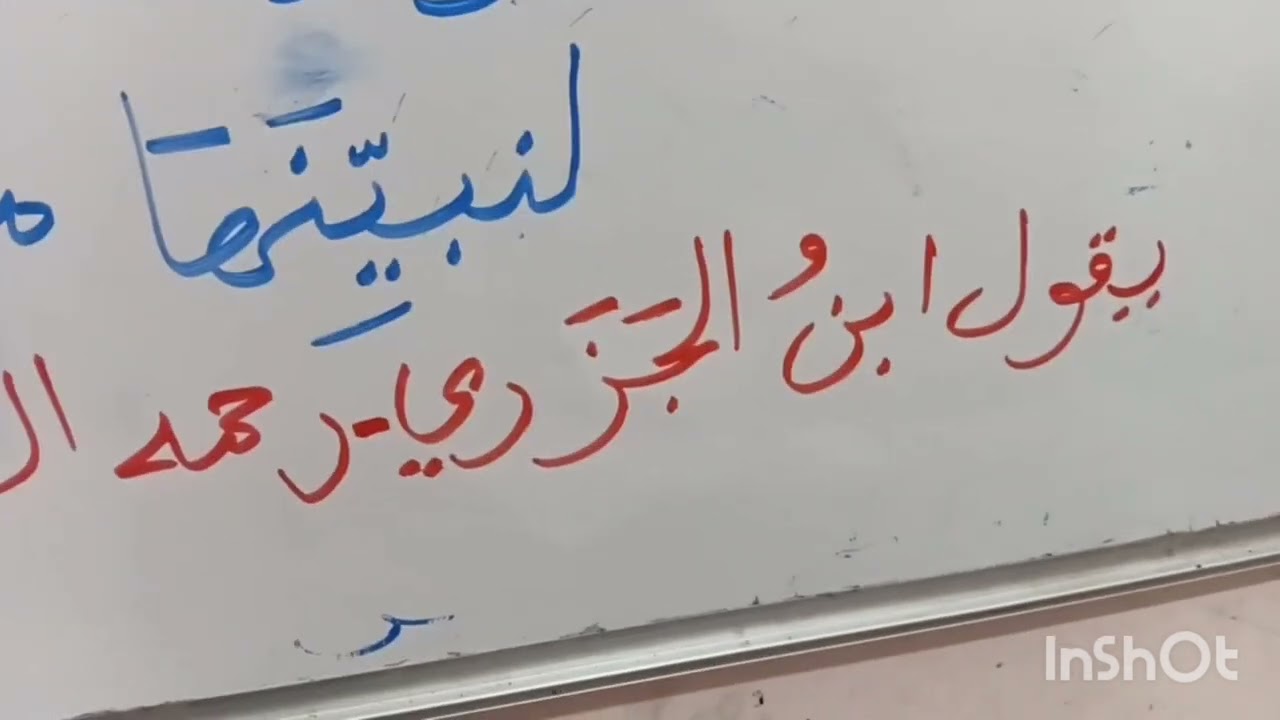 لنبيِّنَها
يقول ابنُ الجَزَري - رحمه
InShOt